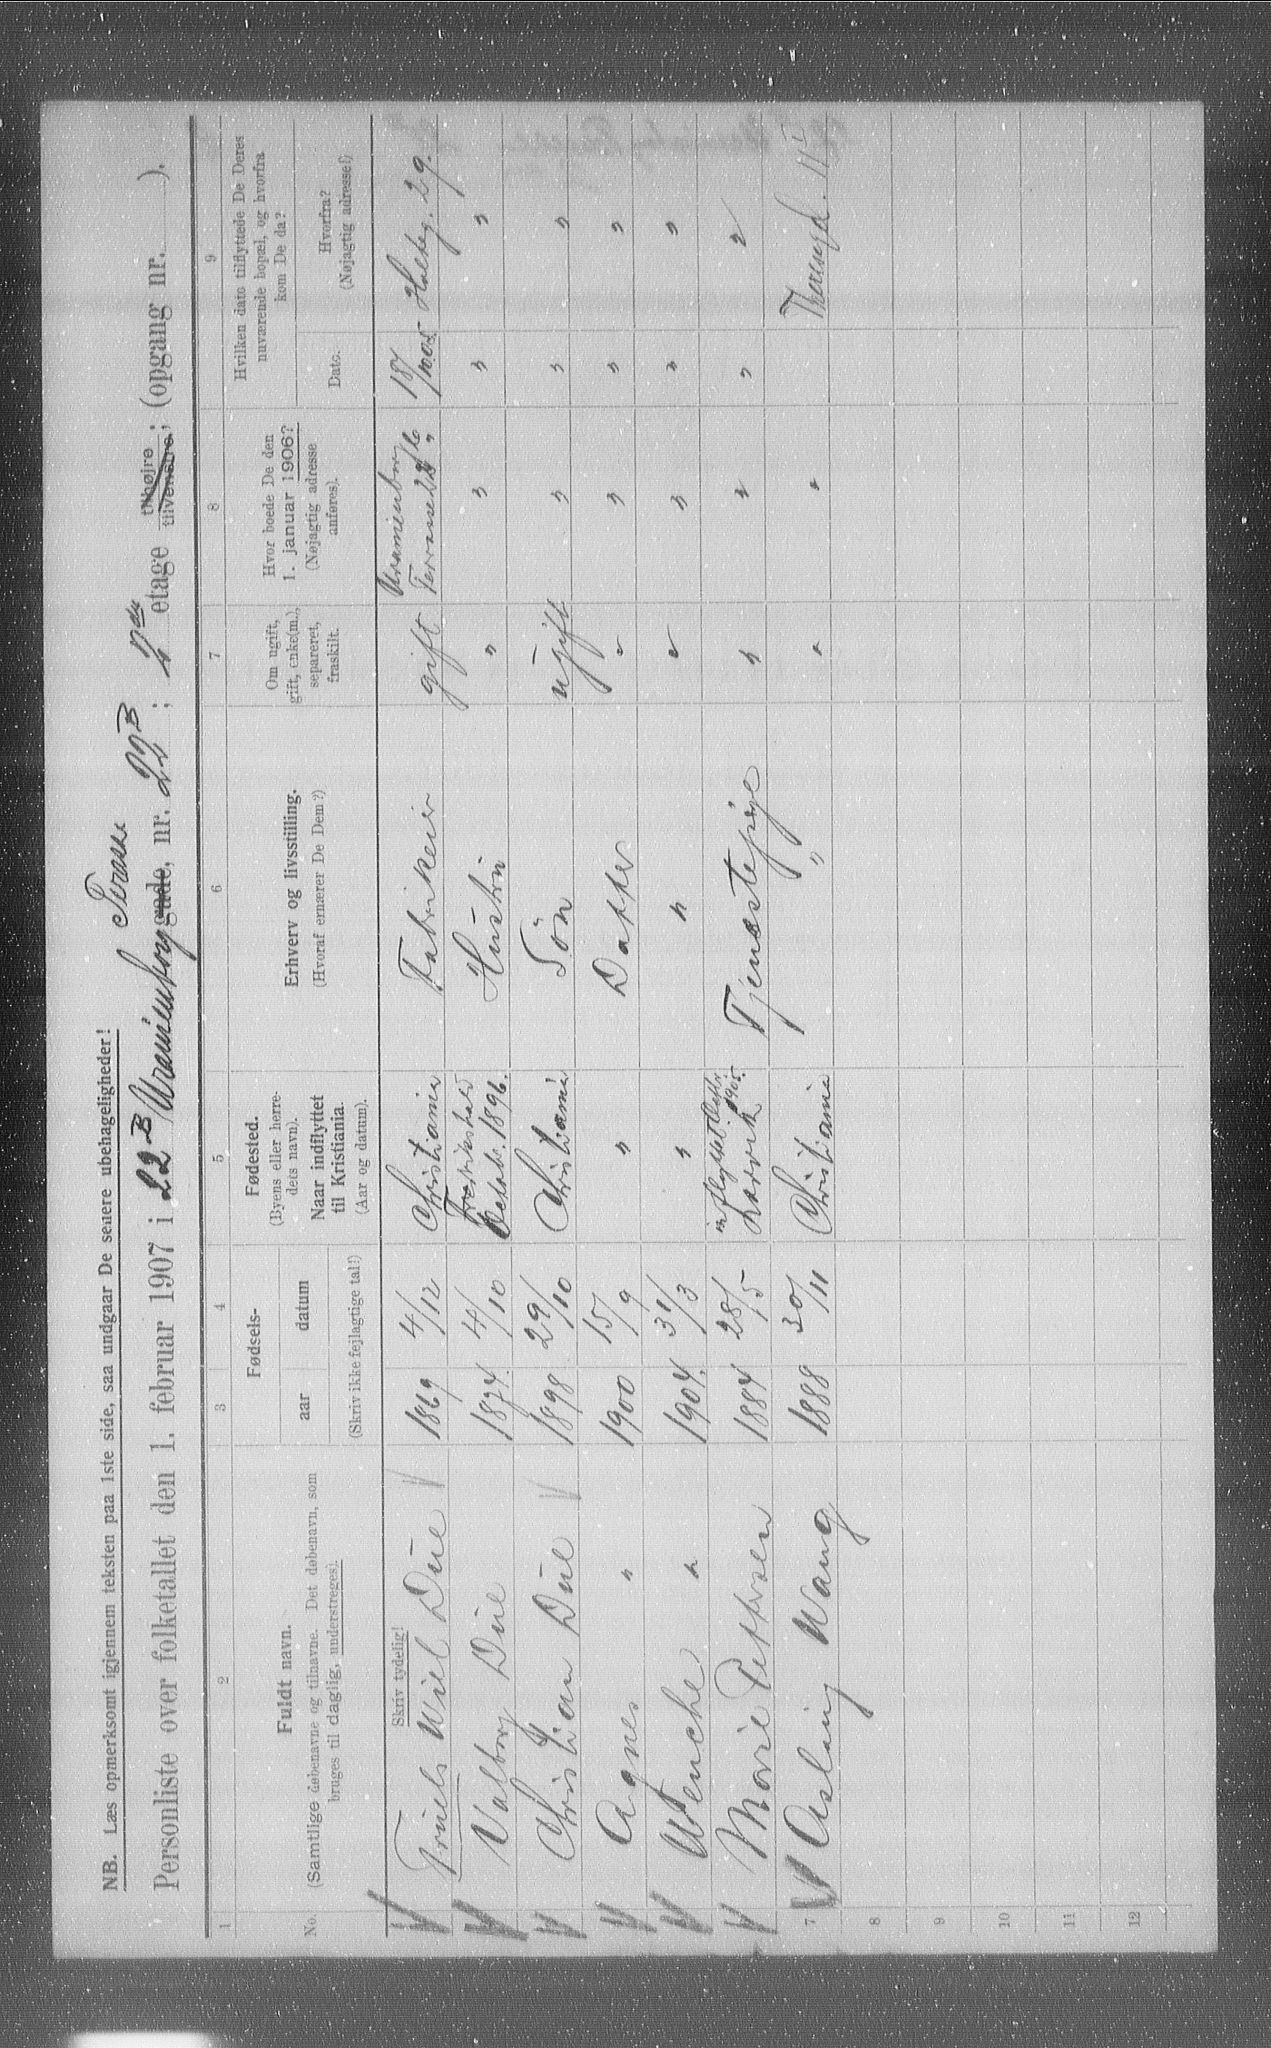 NB. Læs opmerksomt igjennem teksten paa 1ste side, saa undgaar De senere ubehageligheder!
Personliste over folketallet den 1. februar 1907 i 22B Uranienborggade, Terasse nr. 22B; 2den etage tilhøjre tilvenstre; (opgang nr. ).
1 2 3 4 5 6 7 8 9
No.
Fuldt navn.
(Samtlige døbenavne og tilnavne. Det døbenavn, som
bruges til daglig, understreges).
Skriv tydelig!
Fødsels-
aar datum
(Skriv ikke fejlagtige tal!)
Fødested.
(Byens eller herre-
dets navn).
Naar indflyttet
til Kristiania.
(Aar og datum).
Erhverv og livsstilling.
(Hvoraf ernærer De Dem?)
Om ugift,
gift, enke(m.),
separeret,
fraskilt.
Hvor boede De den
1. januar 1906?
(Nøjagtig adresse
anføres).
Hvilken dato tilflyttede De Deres
nuværende bopæl, og hvorfra
kom De da?
Dato.
Hvorfra?
(Nøjagtig adresse!)
Truels Wiel Due 1869 4/12 Christiania Fabrikeier gift Uranienborg Terrasse 18/ 1005 Holteg. 29.
Valborg Due 1874. 4/10 Fredrikshald Octobr. 1896. Hustru " " " "
Christian Due 1898 29/10 Christiania Sön ugift " " "
Agnes " 1900 15/9 " Datter " " " "
Wenche " 1904. 31/3 " " " " " "
Marie Pettersen 1884 28/5 indflyttet 1905. Larvik Tjenestepige " " " "
7 Aslaug Wang 1888 30/11 Christiania " " " Theresesgd. 11 I
8
9
10
11
12